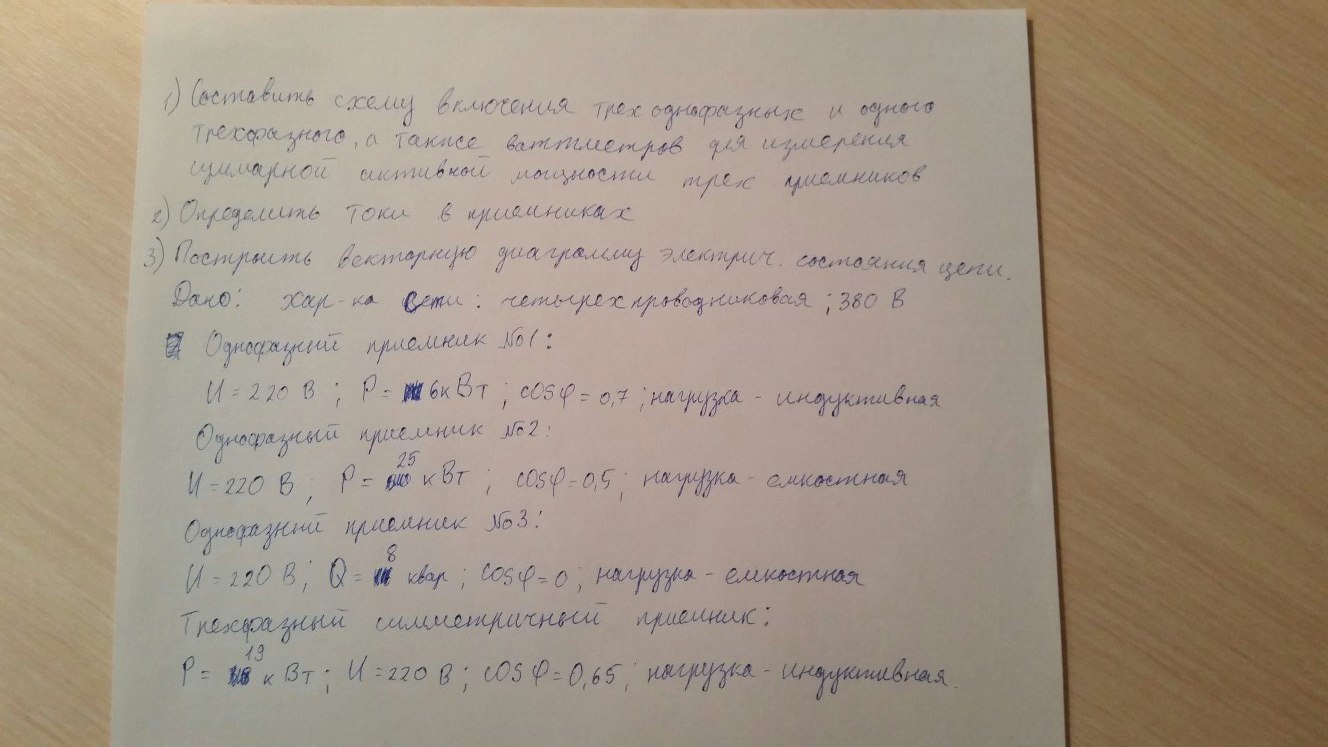 1) Составить схему включения трех однофазных и одного
трехфазного, а также ваттметров для измерения
суммарной активной мощности трех приемников
2) Определить токи в приемниках
3) Построить векторную диаграмму электрич. состояния цепи.
Дано: хар-ка сети: четырехпроводниковая; 380 В
Однофазный приемник №1:
U = 220 В ; P = 6 кВт ; cosφ = 0,7 ; нагрузка - индуктивная
Однофазный приемник №2:
U = 220 В ; P = 25 кВт ; cosφ = 0,5 ; нагрузка - емкостная
Однофазный приемник №3:
U = 220 В ; Q = 8 квар ; cosφ = 0 ; нагрузка - емкостная
Трехфазный симметричный приемник:
P = 19 кВт ; U = 220 В ; cosφ = 0,65 ; нагрузка - индуктивная.